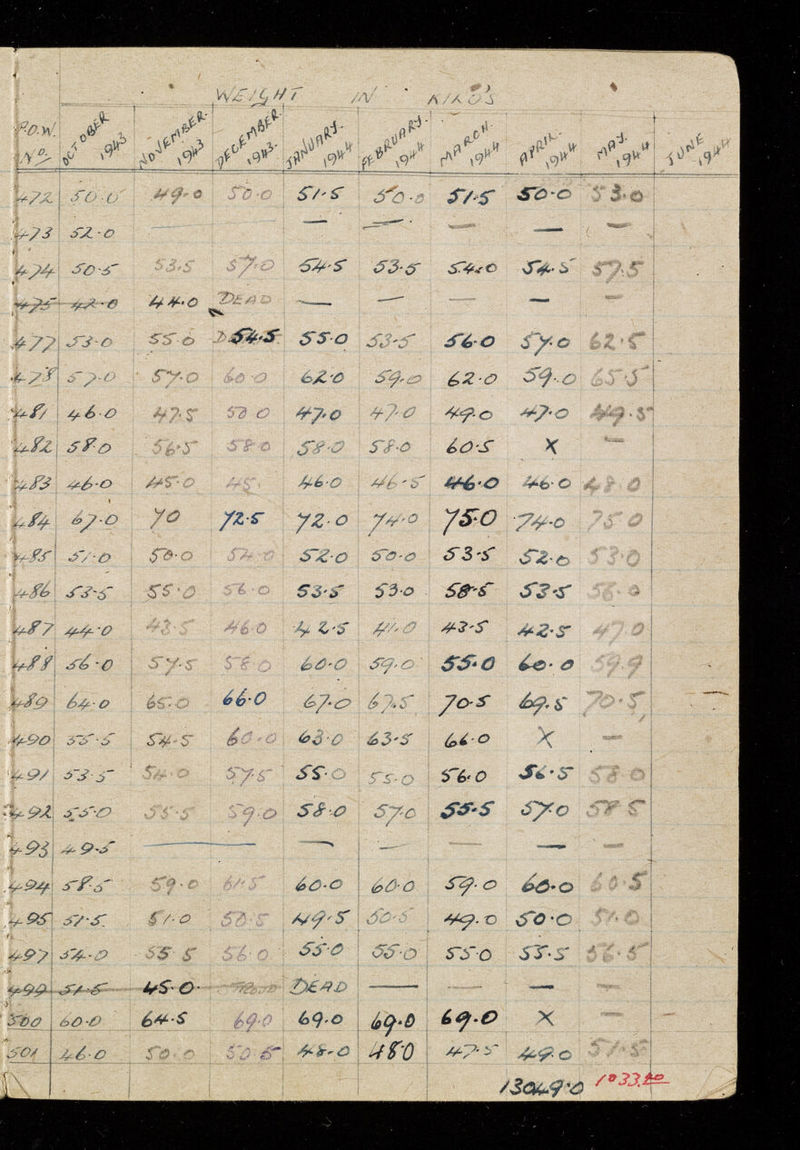 WEIGHT IN KILO'S
P.O.W. No. OCTOBER 1943 NOVEMBER. 1943 DECEMBER. 1943. JANUARY. 1944 FEBRUARY. 1944 MARCH. 1944 APRIL. 1944 MAY. 1944 JUNE 1944
472 50.0 49.0 50.0 51.5 50.0 51.5 50.0 53.0
473 52.0 — — — — — —
474 50.5 53.5 57.0 54.5 53.5 54.0 54.5 57.5
475 42.0 44.0 DEAD — — — — —
477 53.0 55.0 54.5 55.0 53.5 56.0 57.0 62.5
478 57.0 57.0 60.0 62.0 59.0 62.0 59.0 65.5
481 46.0 47.5 50.0 47.0 47.0 49.0 47.0 49.5
482 58.0 56.5 58.0 58.0 58.0 60.5 X —
483 46.0 45.0 45. 46.0 46.5 46.0 46.0 48.0
484 67.0 70 72.5 72.0 74.0 75.0 74.0 75.0
485 51.0 50.0 54.0 52.0 50.0 53.5 52.0 53.0
486 53.5 55.0 56.0 53.5 53.0 58.5 53.5 56.0
487 44.0 43.5 46.0 42.5 41.0 43.5 42.5 47.0
488 56.0 57.5 58.0 60.0 59.0 55.0 60.0 59.9
489 64.0 65.0 66.0 67.0 67.5 70.5 69.5 70.5
490 55.5 54.5 60.0 63.0 63.5 66.0 X —
491 53.5 54.0 57.5 55.0 55.0 56.0 56.5 58.0
492 55.0 55.5 59.0 58.0 57.0 55.5 57.0 58.5
493 49.5 — — — — — —
494 58.5 59.0 61.5 60.0 60.0 59.0 60.0 60.5
495 51.5 51.0 50.5 49.5 50.5 49.0 50.0 51.0
497 54.0 55.5 56.0 55.0 55.0 55.0 55.5 56.5
499 51.5 45.0 DEAD — — — —
500 60.0 64.5 69.0 69.0 69.0 69.0 X —
501 46.0 50.0 50.5 48.0 48.0 47.5 49.0 51.5
13049.0 1033.20